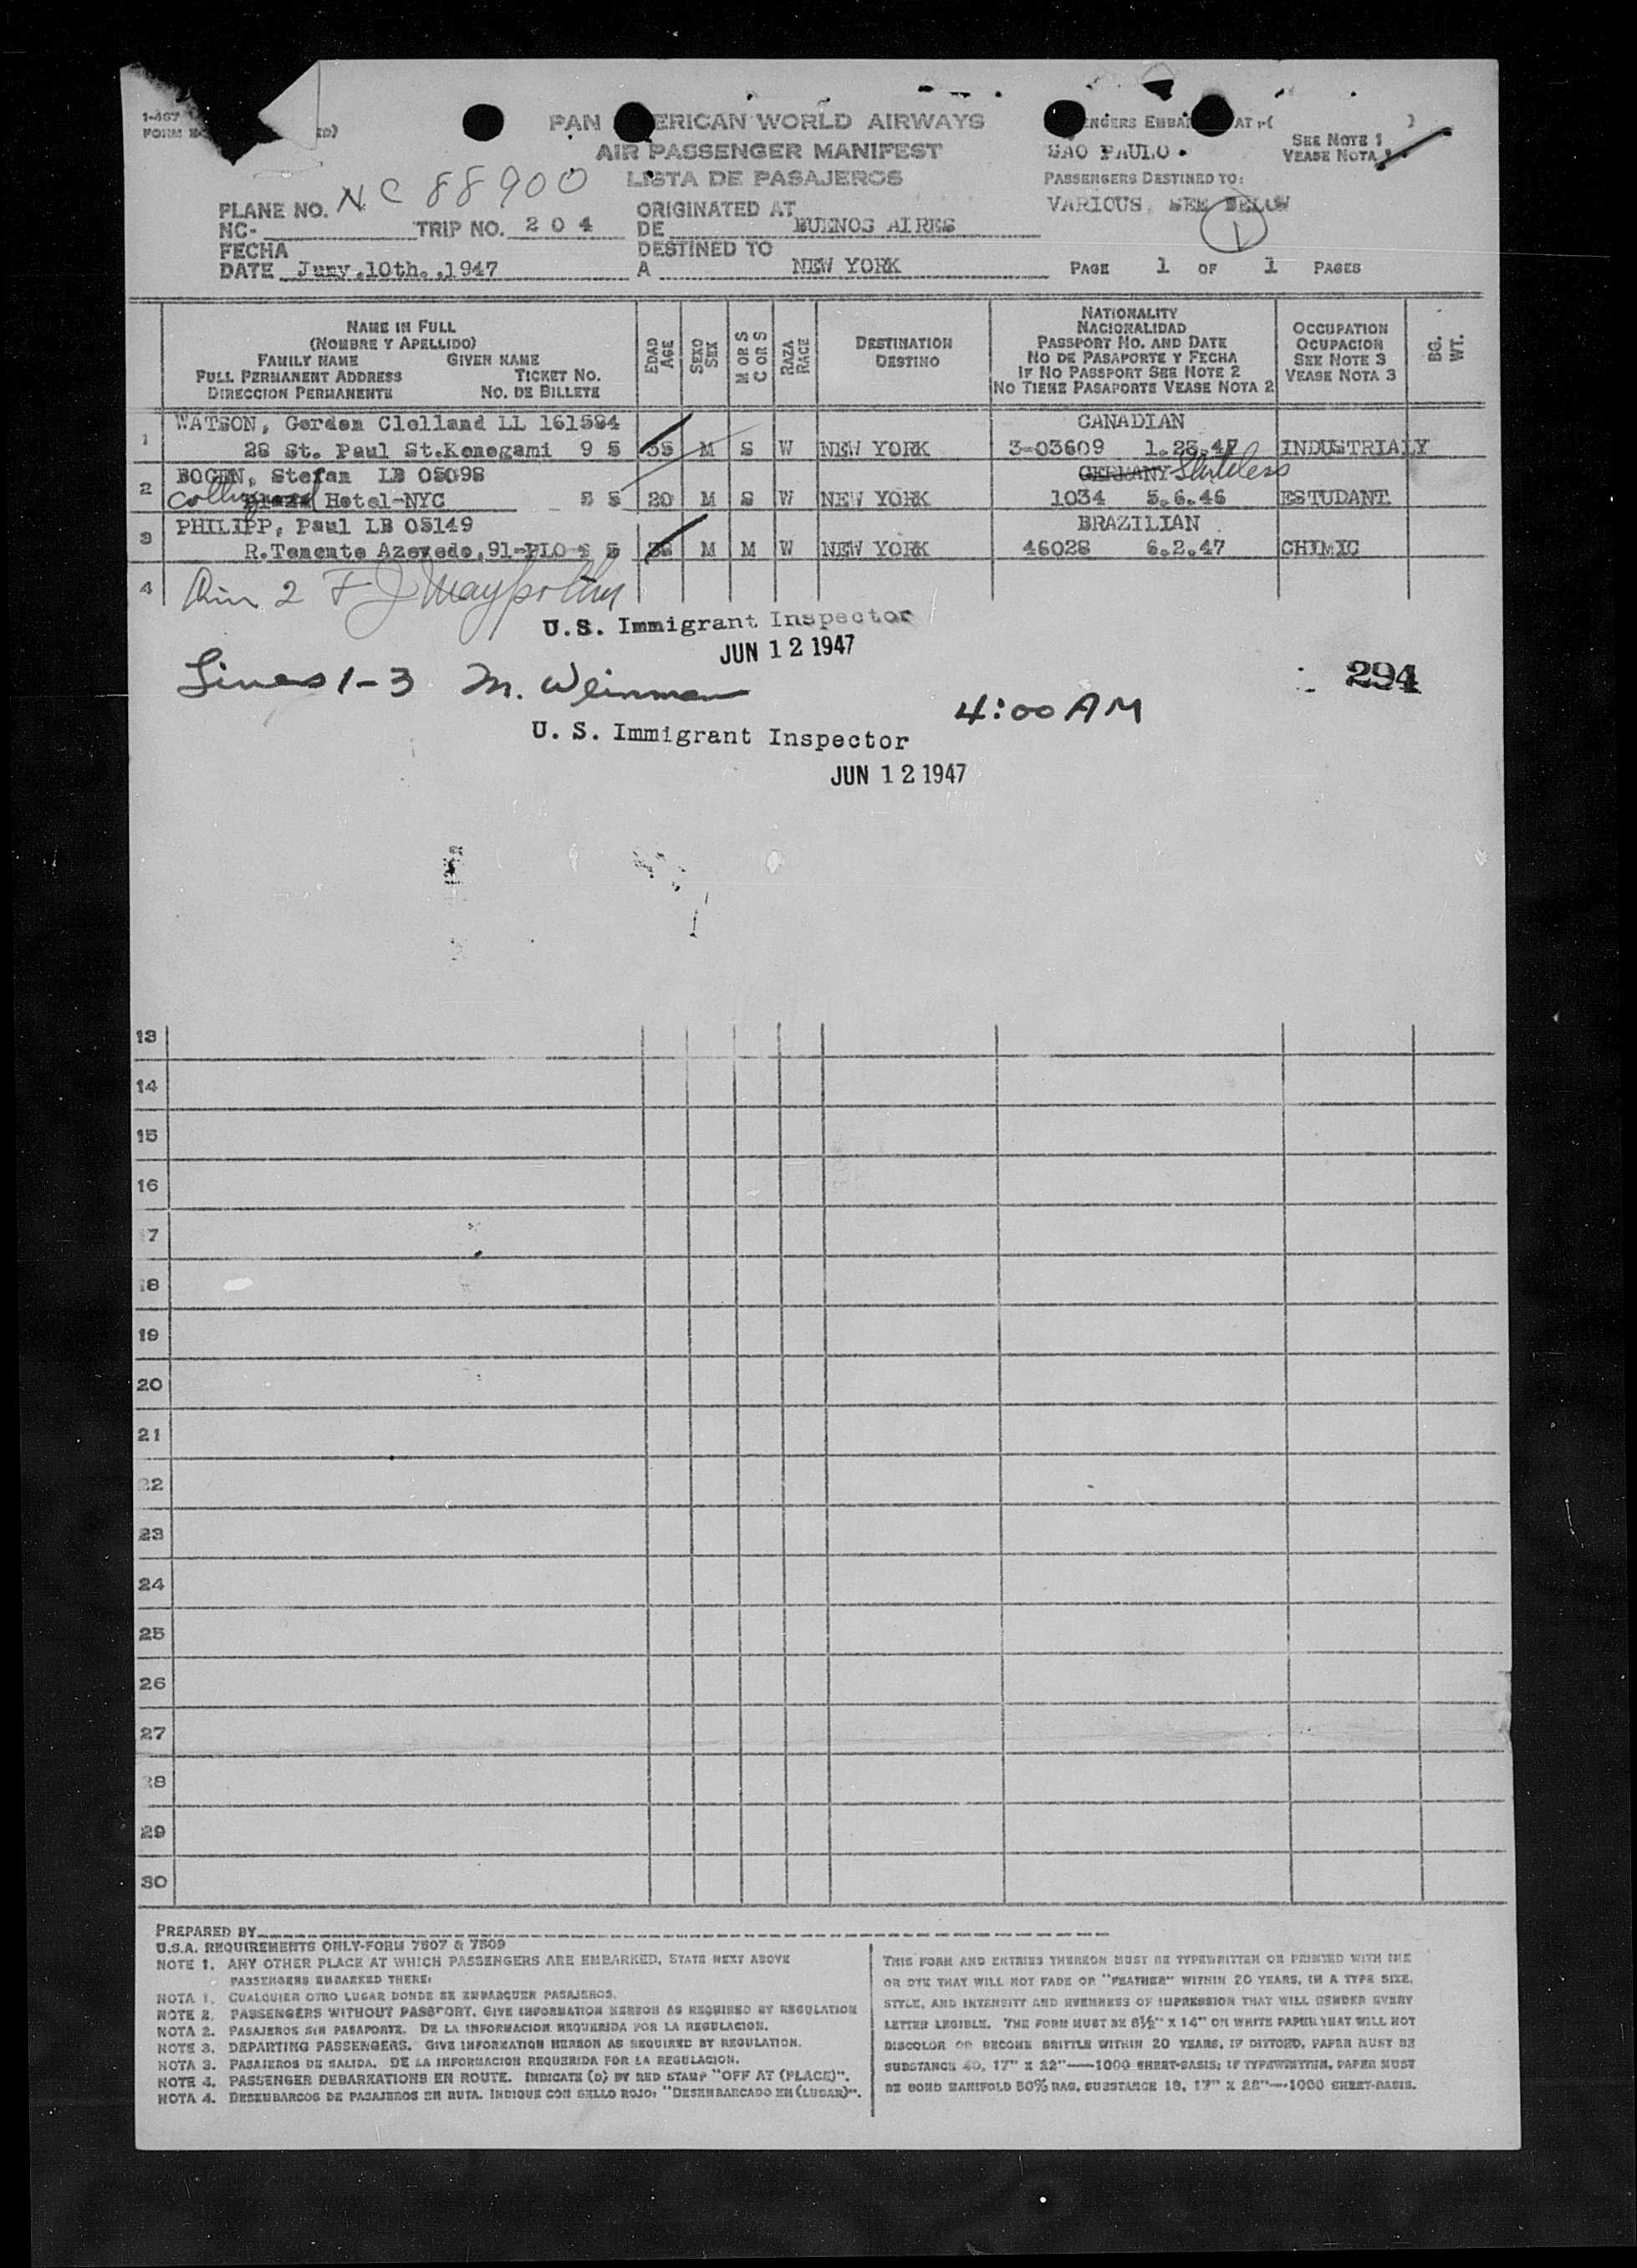 1-467
FORM
PAN ERICAN WORLD AIRWAYS
AIR PASSENGER MANIFEST
LISTA DE PASAJEROS
ENGERS EMBAR AT (                )
SAO PAULO.
SEE NOTE 1
VEASE NOTA 1
PASSENGERS DESTINED TO:
VARIOUS, SEE BELOW
1
PLANE NO. NC 88900
NC- TRIP NO. 2 0 4
ORIGINATED AT
DE BUENOS AIRES
FECHA
DATE Juny.10th.,1947
DESTINED TO
A NEW YORK
PAGE 1 OF 1 PAGES
NAME IN FULL
(NOMBRE Y APELLIDO)
FAMILY NAME GIVEN NAME
FULL PERMANENT ADDRESS TICKET NO.
DIRECCION PERMANENTE NO. DE BILLETE
EDAD
AGE
SEXO
SEX
M OR S
C OR S
RAZA
RACE
DESTINATION
DESTINO
NATIONALITY
NACIONALIDAD
PASSPORT NO. AND DATE
NO DE PASAPORTE Y FECHA
IF NO PASSPORT SEE NOTE 2
NO TIENE PASAPORTE VEASE NOTA 2
OCCUPATION
OCUPACION
SEE NOTE 3
VEASE NOTA 3
BG.
WT.
WATSON, Gordon Clelland LL 161584 CANADIAN
1 28 St. Paul St.Kenogami 9 5 35 M S W NEW YORK 3-03609 1.23.47 INDUSTRIALY
BOGEN, Stefan LB 05098 GERMANY Stateless
2 Hotel-NYC 5 5 20 M S W NEW YORK 1034 5.6.46 ESTUDANT
PHILIPP, Paul LB 05149 BRAZILIAN
3 R.Tenente Azevedo,91-PLO 5 5 M M W NEW YORK 46028 6.2.47 CHIMIC
4 2 F J
U.S. Immigrant Inspector
JUN 12 1947
Lines 1-3 M. Weinman
294
4:00 AM
U. S. Immigrant Inspector
JUN 12 1947
13
14
15
16
7
18
19
20
21
22
23
24
25
26
27
28
29
30
PREPARED BY
U.S.A. REQUIREMENTS ONLY-FORM 7507 & 7509
NOTE 1. ANY OTHER PLACE AT WHICH PASSENGERS ARE EMBARKED, STATE NEXT ABOVE
PASSENGERS EMBARKED THERE:
NOTA 1. CUALQUIER OTRO LUGAR DONDE SE EMBARQUEN PASAJEROS.
NOTE 2. PASSENGERS WITHOUT PASSPORT. GIVE INFORMATION HEREON AS REQUIRED BY REGULATION
NOTA 2. PASAJEROS SIN PASAPORTE. DE LA INFORMACION REQUERIDA POR LA REGULACION.
NOTE 3. DEPARTING PASSENGERS. GIVE INFORMATION HEREON AS REQUIRED BY REGULATION.
NOTA 3. PASAJEROS DE SALIDA. DE LA INFORMACION REQUERIDA POR LA REGULACION.
NOTE 4. PASSENGER DEBARKATIONS EN ROUTE. INDICATE (D) BY RED STAMP "OFF AT (PLACE)".
NOTA 4. DESEMBARCOS DE PASAJEROS EN RUTA. INDIQUE CON SELLO ROJO: "DESEMBARCADO EN (LUGAR)".
THIS FORM AND ENTRIES THEREON MUST BE TYPEWRITTEN OR PRINTED WITH INK
OR DYE THAT WILL NOT FADE OR "FEATHER" WITHIN 20 YEARS, IN A TYPE SIZE,
STYLE, AND INTENSITY AND EVENNESS OF IMPRESSION THAT WILL RENDER EVERY
LETTER LEGIBLE. THE FORM MUST BE 8½" X 14" ON WHITE PAPER THAT WILL NOT
DISCOLOR OR BECOME BRITTLE WITHIN 20 YEARS. IF DITTOED, PAPER MUST BE
SUBSTANCE 40, 17" X 22"—1000 SHEET-BASIS; IF TYPEWRITTEN, PAPER MUST
BE BOND MANIFOLD 50% RAG, SUBSTANCE 18, 17" X 28"—1000 SHEET-BASIS.